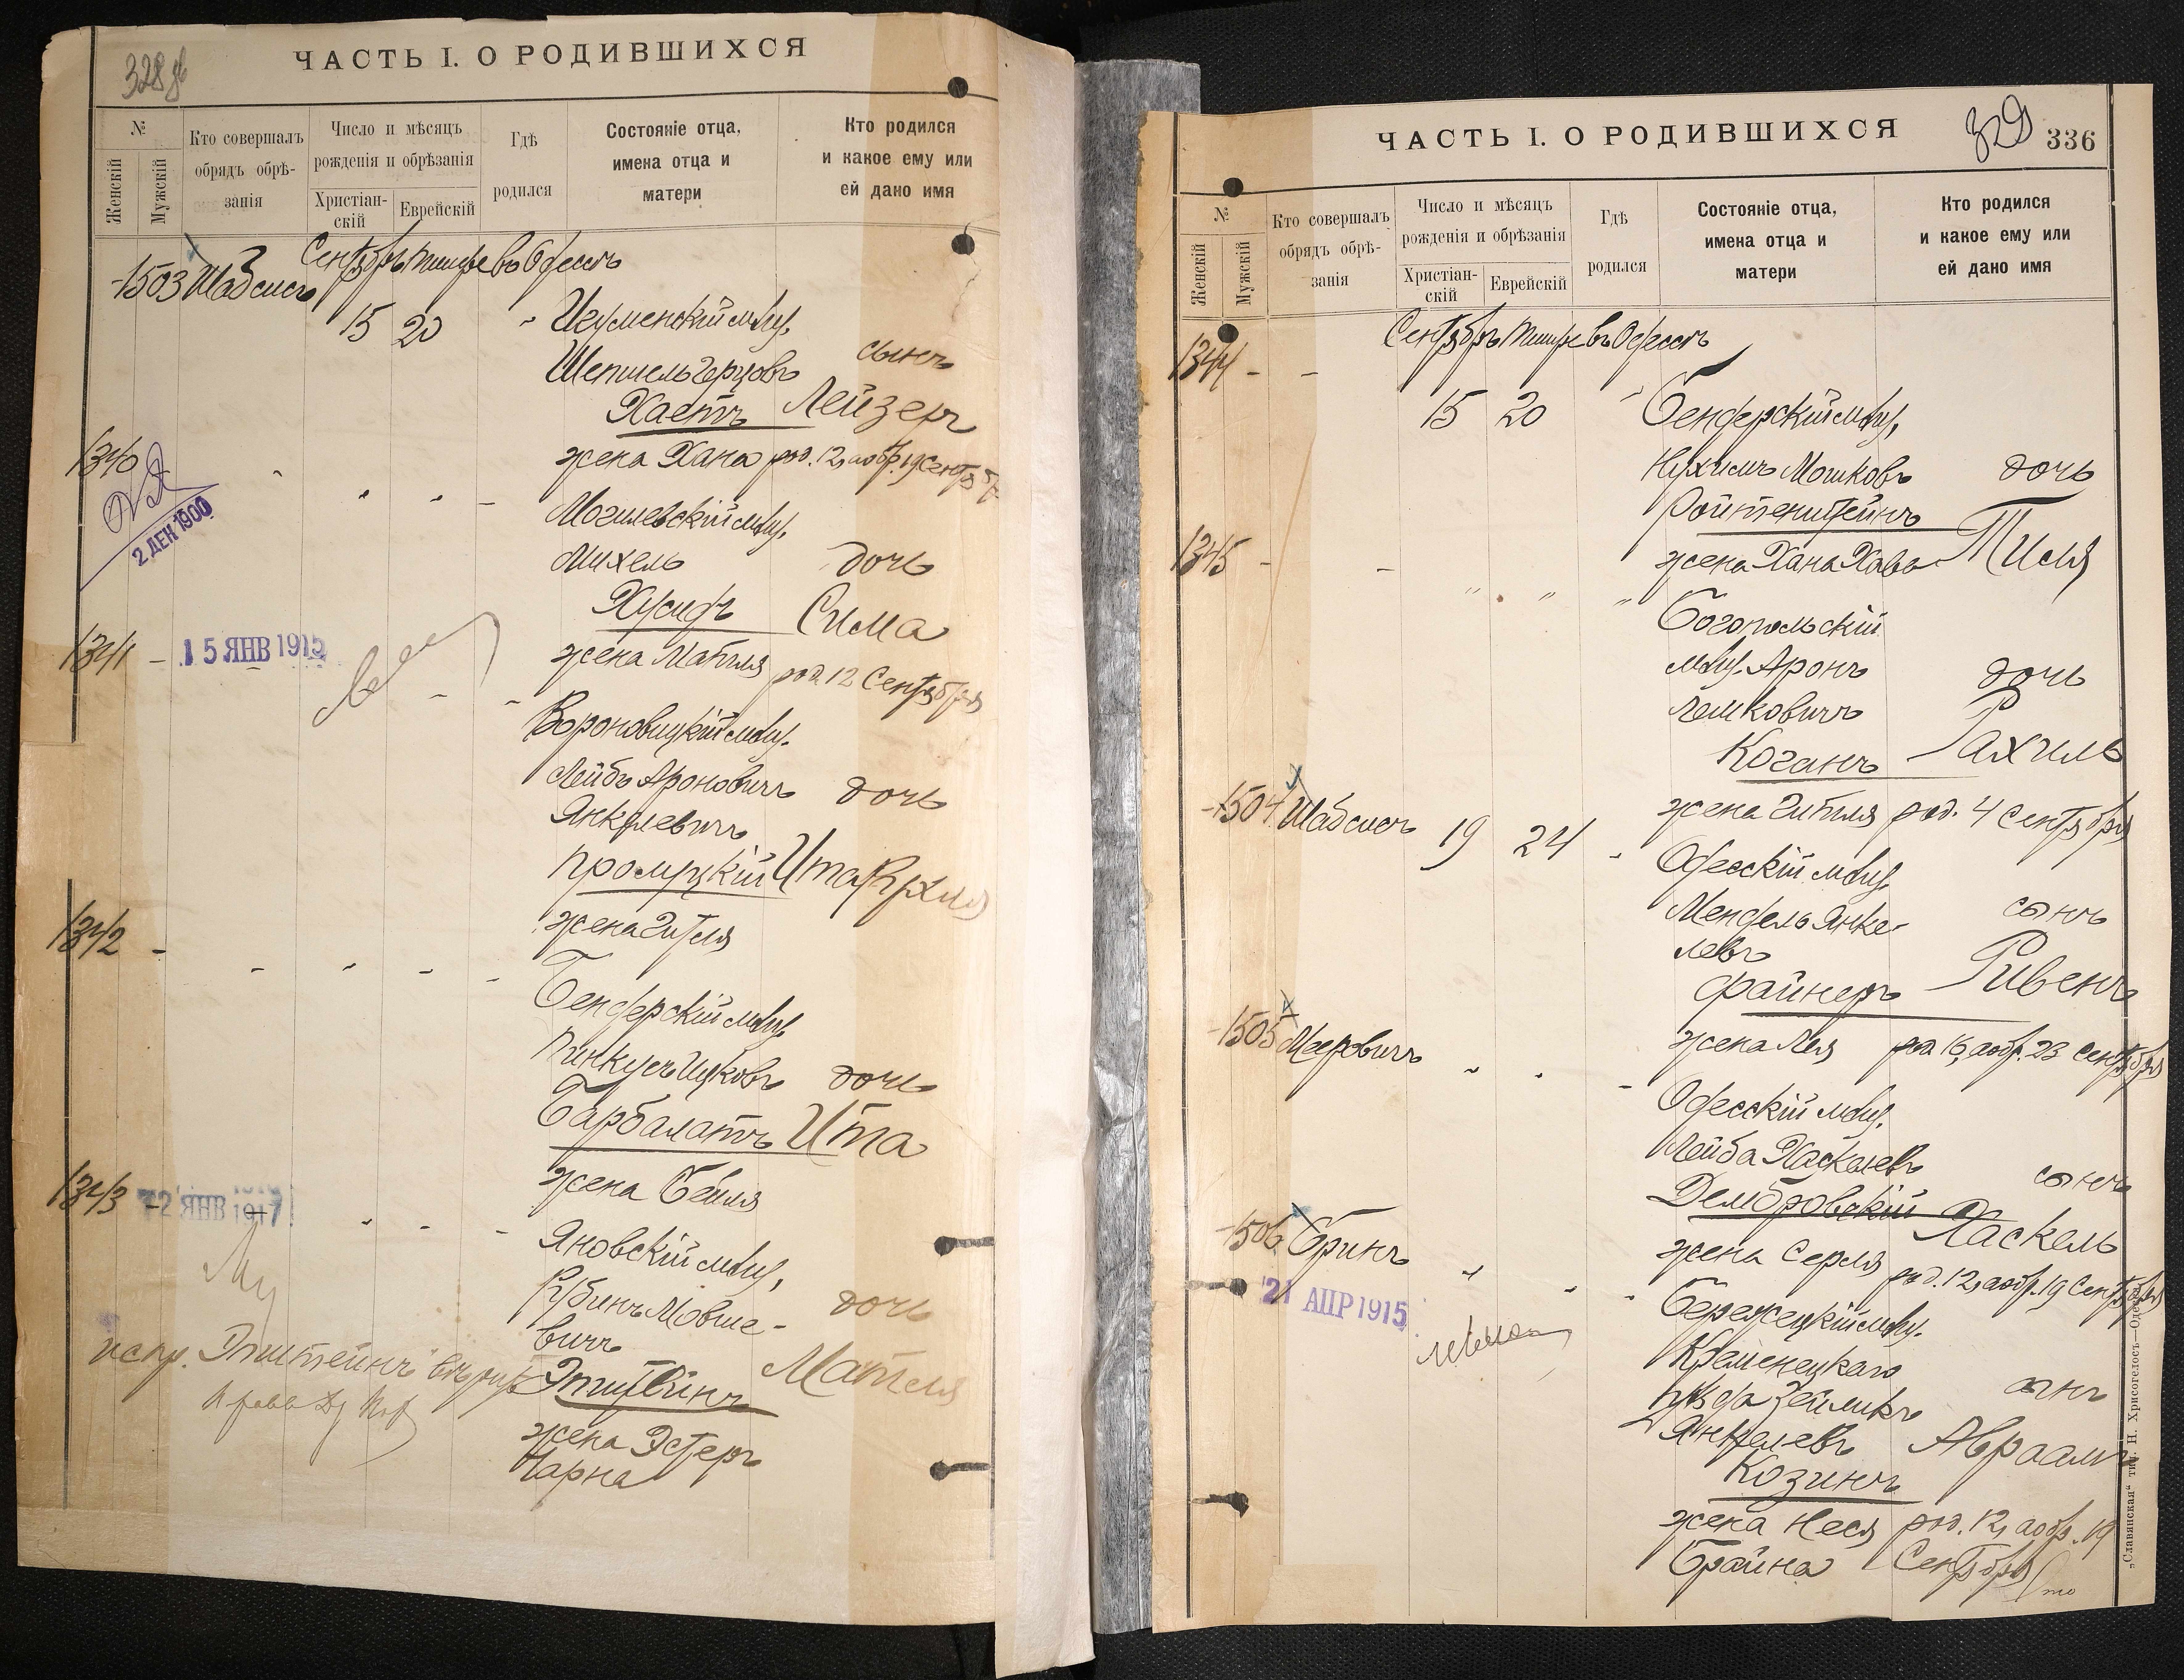 328 об
ЧАСТЬ I. О РОДИВШИХСЯ
№
Женскій
Мужскій
Кто совершалъ
обрядъ обрѣ-
занія
Число и мѣсяцъ
рожденія и обрѣзанія
Христіан-
скій
Еврейскій
Гдѣ
родился
Состояніе отца,
имена отца и
матери
Кто родился
и какое ему или
ей дано имя
Сентябрь Тишри въ Одессѣ
1503 Шабсисъ
15 20 Игуменскій мѣщ.
Шепшель Герцовъ сынъ
Хаетъ Лейзеръ
жена Хана род. 12, а обр. 19 Сентяб
1340
2 ДЕК 1900
Могилевскій мѣщ.
Михель дочь
Хусидъ Сима
жена Матля род. 12 Сентября
1341 - 15 ЯНВ 1915
Вороновицкій мѣщ.
Лейбъ Ароновичъ дочь
Янкелевичъ
Промуцкій Ита Рухля
жена Гитля
1342 -
Бендерскій мѣщ.
Пинкусъ Ицковъ дочь
Барбалатъ Ита
жена Бейля
1343 - 2 ЯНВ 1917
Яновскій мѣщ.
Рубинъ Мовше- дочь
вичъ
Эпштейнъ Матля
испр. Эпштейнъ
жена Эстеръ
Чарна
ЧАСТЬ I. О РОДИВШИХСЯ
329 336
№
Женскій
Мужскій
Кто совершалъ
обрядъ обрѣ-
занія
Число и мѣсяцъ
рожденія и обрѣзанія
Христіан-
скій
Еврейскій
Гдѣ
родился
Состояніе отца,
имена отца и
матери
Кто родился
и какое ему или
ей дано имя
Сентябрь Тишри въ Одессѣ
1344 - -
15 20 Бендерскій мѣщ.
Нухимъ Мошковъ дочь
Ройтенштейнъ
жена Хана Хава
1345 - -
Богопольскій
мѣщ. Аронъ дочь
Лемковичъ
Коганъ Рахиль
жена Гитля род. 4 Сентября
1504 Шабсисъ 19 24
Одесскій мѣщ.
Мендель Янке- сынъ
левъ
Файнеръ Рувенъ
жена Лея род. 16, а обр. 23 Сентября
1505 Мееровичъ
Одесскій мѣщ.
Лейба Хаскелевъ сынъ
Дембровскій Хаскель
жена Серля род. 12, а обр. 19 Сентября
1506 Бринъ
21 АПР 1915
Бережецкій мѣщ.
Кременецкаго
уѣзда Зейликъ сынъ
Янкелевъ Авраамъ
Козинъ
жена Неся род. 12, а обр. 19
Брайна Сентября
„Славянская“ тип. Н. Хрисогелосъ—Одесса